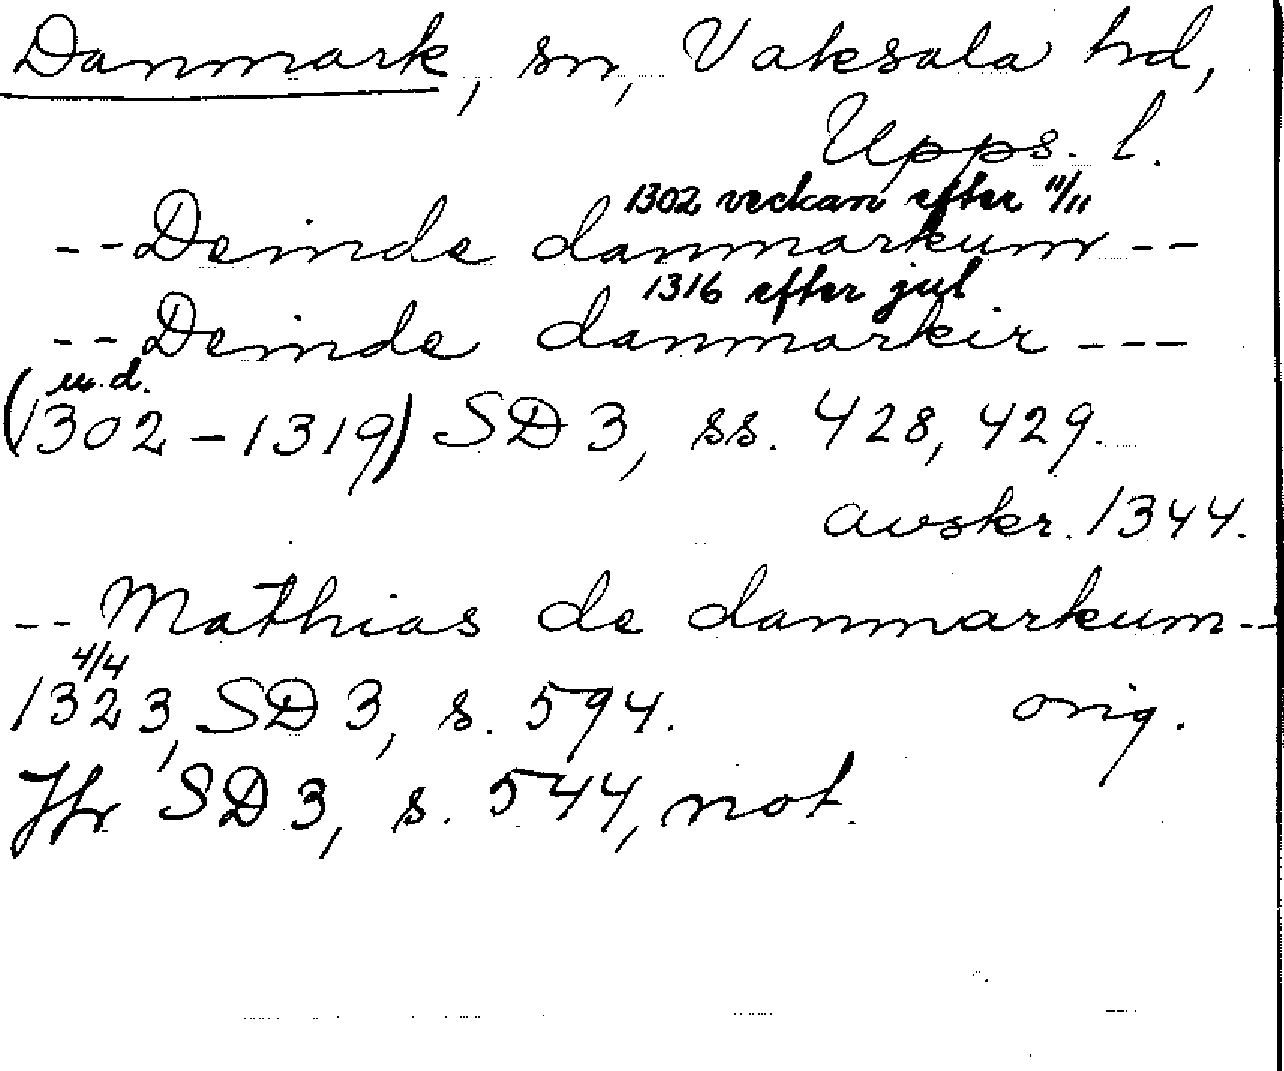 Danmark, sn, Vaksala hd,
Upps. l.
1302 veckan efter 11/11
--Deinde danmarkum--
1316 efter jul
--Deinde danmarkir---
u.d.
(1302-1319) SD 3, ss. 428, 429.
avskr. 1344.
--Mathias de danmarkum--
4/4
1323, SD 3, s. 594. orig.
Jfr SD 3, s. 544, not.